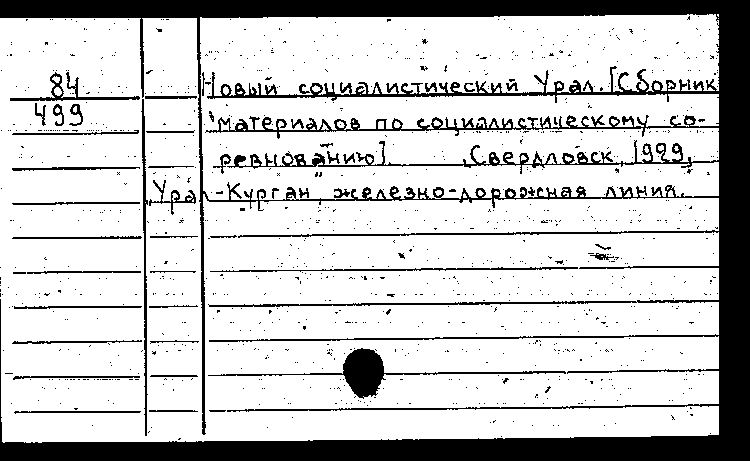 84
499
Новый социалистический Урал. [Сборник
материалов по социалистическому со-
ревнованию]. Свердловск, 1929,
"Урал-Курган" железно-дорожная линия.